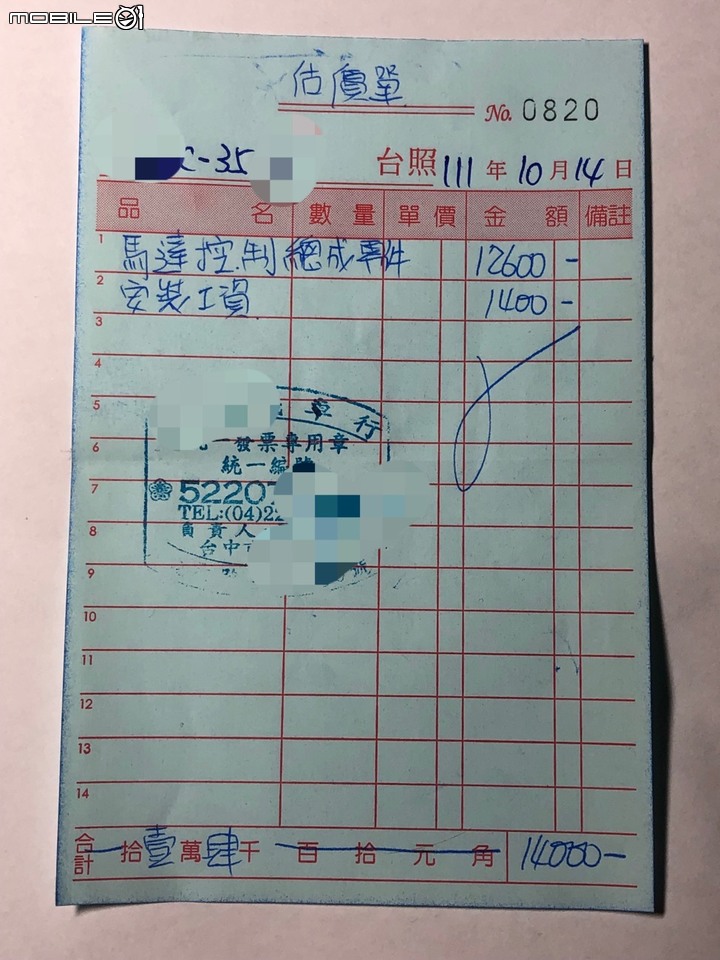 mobile01
估價單
No. 0820
-35
台照 111 年 10 月 14 日
品名 數量 單價 金額 備註
1 馬達控制總成事件 12600-
2 安裝工資 1400-
3
4
5 車行
6 一發票專用章
統一編號
7 5220
TEL:(04)22
8 負責人
台中市
9 號
10
11
12
13
14
合計 拾壹萬肆千百拾元角 14000-